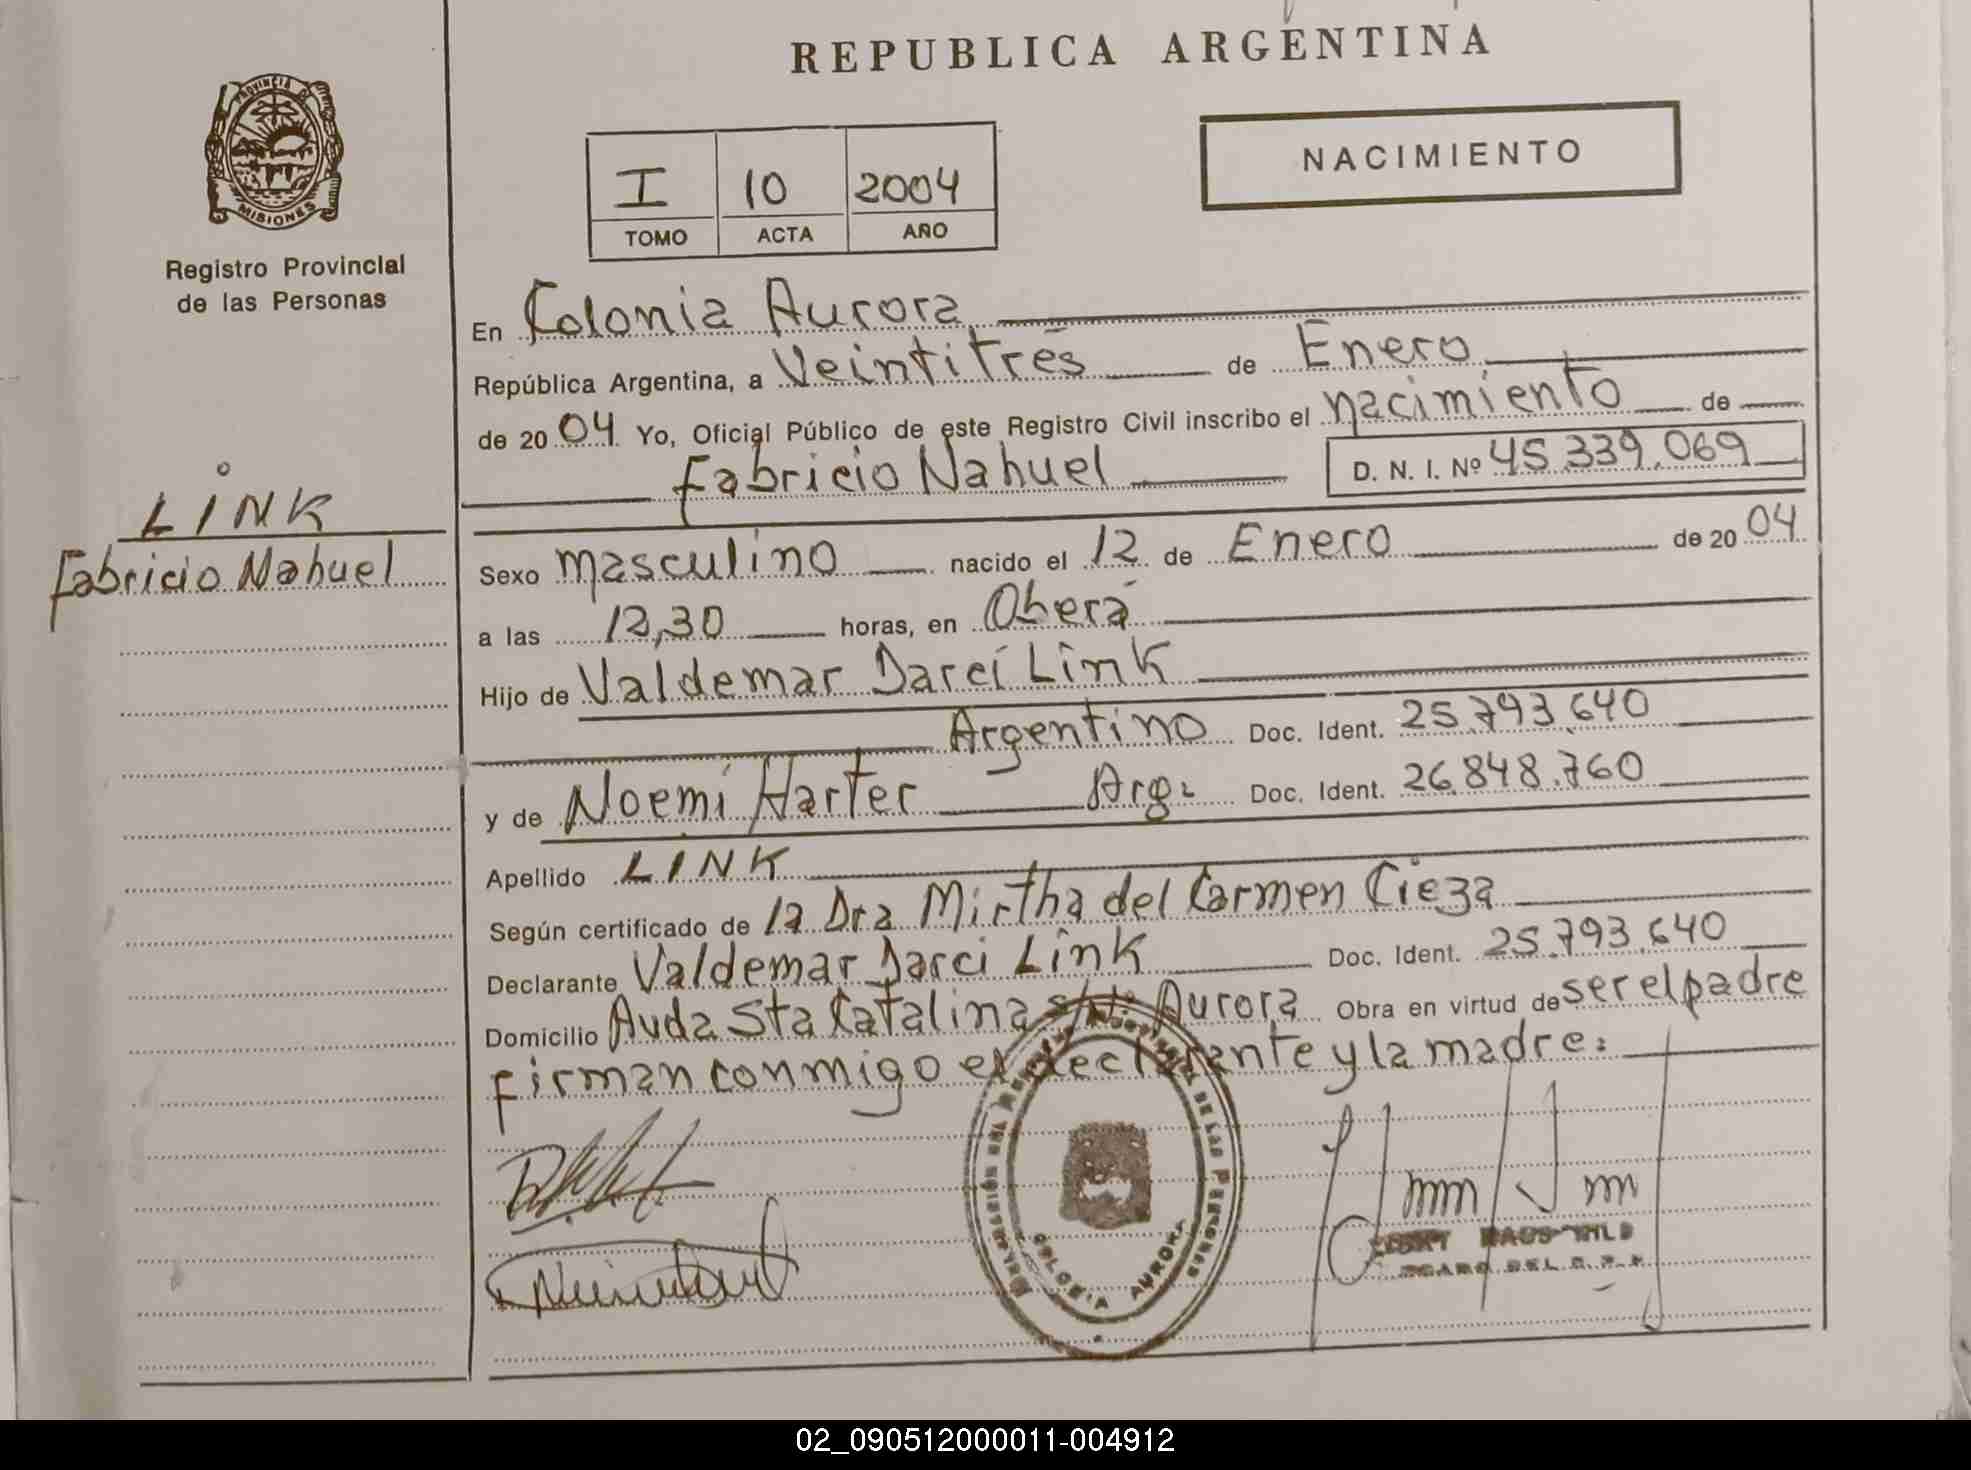 REPUBLICA ARGENTINA
PROVINCIA DE
MISIONES
Registro Provincial
de las Personas
I 10 2004
TOMO ACTA AÑO
NACIMIENTO
En Colonia Aurora
República Argentina, a Veintitrés de Enero
de 2004 Yo, Oficial Público de este Registro Civil inscribo el nacimiento de
Fabricio Nahuel D. N. I. Nº 45.339.069
LINK
Fabricio Nahuel
Sexo masculino nacido el 12 de Enero de 2004
a las 12,30 horas, en Oberá
Hijo de Valdemar Darcí Link
Argentino Doc. Ident. 25.793.640
y de Noemí Harter Arg. Doc. Ident. 26.848.760
Apellido LINK
Según certificado de la Dra Mirtha del Carmen Cieza
Declarante Valdemar Darci Link Doc. Ident. 25.793.640
Domicilio Avda Sta Catalina s/Nº Aurora Obra en virtud de ser el padre
firman conmigo el declarante y la madre.
DE LAS PERSONAS
COLONIA AURORA
02_090512000011-004912